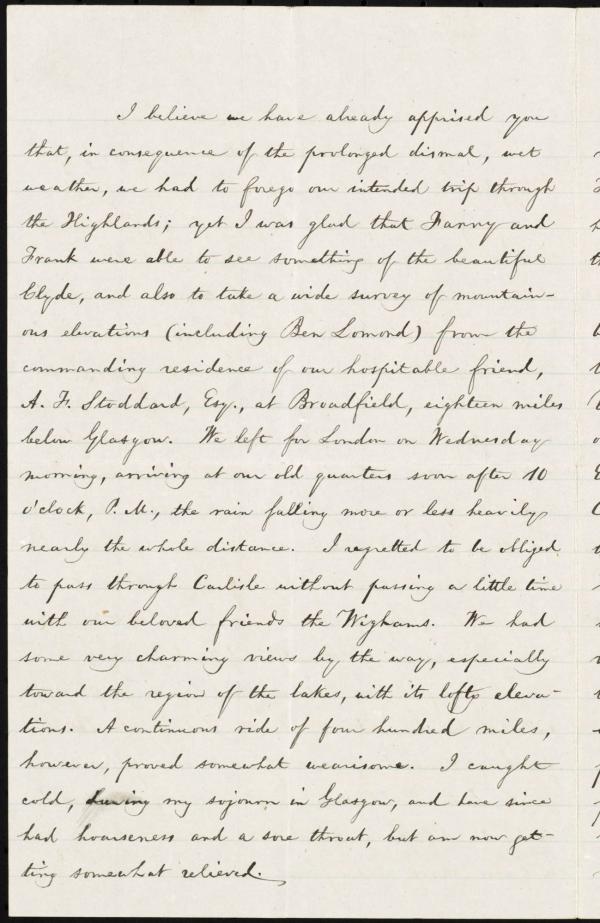 I believe we have already apprised you
that, in consequence of the prolonged dismal, wet
weather, we had to forego our intended trip through
the Highlands; yet I was glad that Fanny and
Frank were able to see something of the beautiful
Clyde, and also to take a wide survey of mountain-
ous elevations (including Ben Lomond) from the
commanding residence of our hospitable friend,
A. F. Stoddard, Esq., at Broadfield, eighteen miles
below Glasgow. We left for London on Wednesday
morning, arriving at our old quarters soon after 10
o'clock, P.M., the rain falling more or less heavily
nearly the whole distance. I regretted to be obliged
to pass through Carlisle without passing a little time
with our beloved friends the Wighams. We had
some very charming views by the way, especially
toward the region of the lakes, with its lofty eleva-
tions. A continuous ride of four hundred miles,
however, proved somewhat wearisome. I caught
cold, during my sojourn in Glasgow, and have since
had hoarseness and a sore throat, but am now get-
ting somewhat relieved.